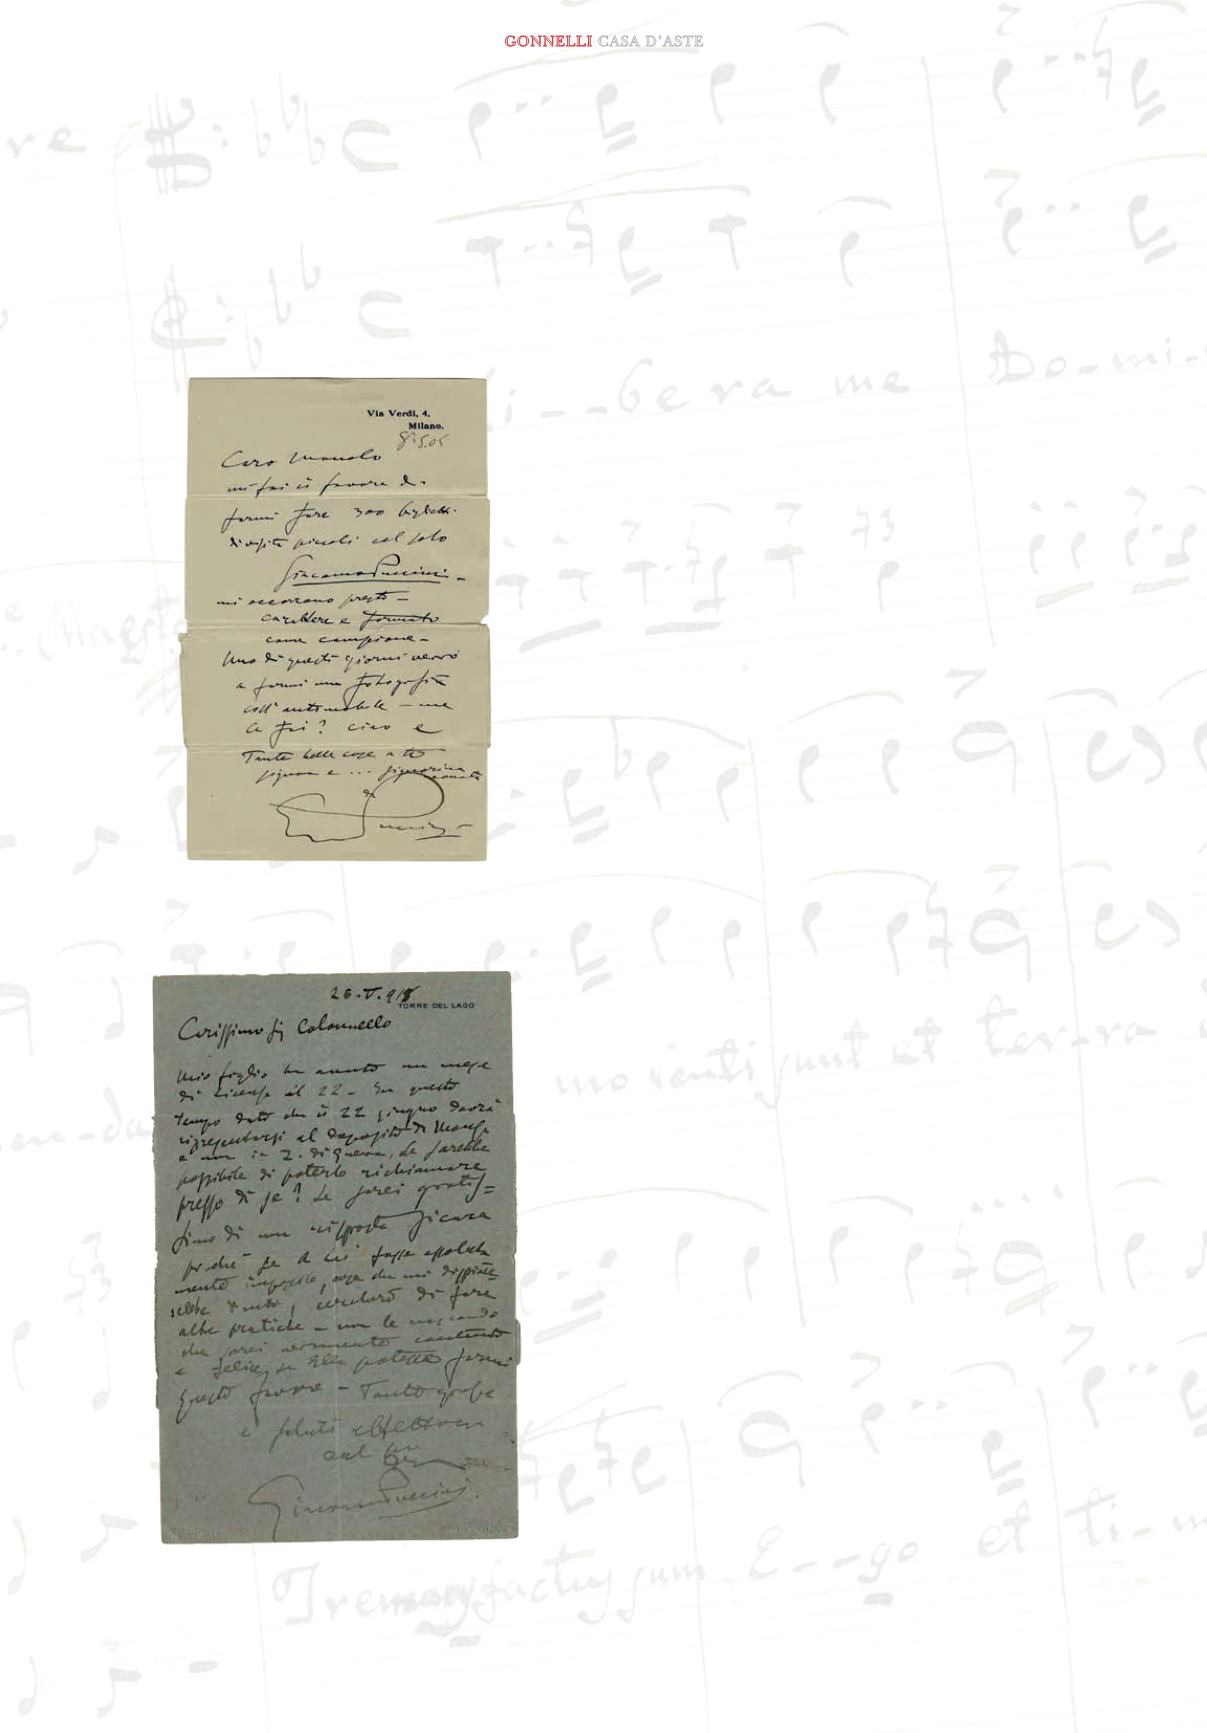 GONNELLI CASA D'ASTE
Via Verdi, 4.
Milano.
8.5.05
Caro Manolo
mi fai il favore di
farmi fare 300 biglietti
di visita piccoli col solo
Giacomo Puccini -
mi occorrono presto -
carattere e formato
come campione -
Uno di questi giorni verrò
a farmi una fotografia
coll'automobile - me
la fai? ciao e
Tante belle cose a te
signora e ... signorina
Puccini
26.V.918
TORRE DEL LAGO
Carissimo Sig Colonnello
Mio figlio ha avuto un mese
di licenza il 22 - In questo
tempo dato che il 22 giugno dovrà
ripresentarsi al deposito di
e non in Z. di guerra, Le sarebbe
possibile di poterlo richiamare
presso di se? Le sarei gratis=
simo di una risposta sicura
perchè se a Lei fosse assoluta
mente impossibile, cosa che mi dispiace
rebbe tanto, cercherò di fare
altre pratiche - non le nascondo
che sarei veramente contento
e felice se Ella potesse farmi
questo favore - Tante grazie
e saluti affettuosi
dal suo
Giacomo Puccini
re
li - - bera me Do-mi-
Maesto
mo venti sunt et ter-ra
Tremens factus sum E - - go et ti-m